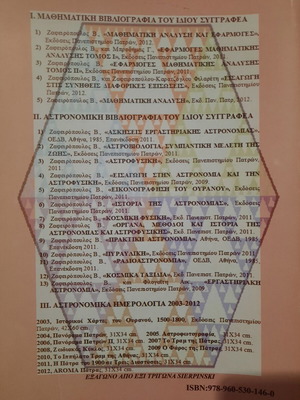 I. ΜΑΘΗΜΑΤΙΚΗ ΒΙΒΛΙΟΓΡΑΦΙΑ ΤΟΥ ΙΔΙΟΥ ΣΥΓΓΡΑΦΕΑ
1) Ζαφειρόπουλος Β., «ΜΑΘΗΜΑΤΙΚΗ ΑΝΑΛΥΣΗ ΚΑΙ ΕΦΑΡΜΟΓΕΣ»,
Εκδόσεις Πανεπιστημίου Πατρών, 2012
2) Ζαφειρόπουλος Β., «ΕΦΑΡΜΟΓΕΣ ΜΑΘΗΜΑΤΙΚΗΣ
ΑΝΑΛΥΣΗΣ ΤΟΜΟΣ Ι», Εκδόσεις Πανεπιστημίου Πατρών, 2012.
3) Ζαφειρόπουλος Β., «ΕΦΑΡΜΟΓΕΣ ΜΑΘΗΜΑΤΙΚΗΣ ΑΝΑΛΥΣΗΣ
ΤΟΜΟΣ ΙΙ», Εκδόσεις Πανεπιστημίου Πατρών, 2012.
4) Ζαφειρόπουλος Β., και Ζαφειροπούλου-Καρατζόγλου Φιλαρέτη «ΕΙΣΑΓΩΓΗ
ΣΤΙΣ ΣΥΝΗΘΕΙΣ ΔΙΑΦΟΡΙΚΕΣ ΕΞΙΣΩΣΕΙΣ», Εκδόσεις Πανεπιστημίου
Πατρών, 2012.
5) Ζαφειρόπουλος Β., «ΜΑΘΗΜΑΤΙΚΗ ΑΝΑΛΥΣΗ», Εκδ. Παν. Πατρ. 2012.
II. ΑΣΤΡΟΝΟΜΙΚΗ ΒΙΒΛΙΟΓΡΑΦΙΑ ΤΟΥ ΙΔΙΟΥ ΣΥΓΓΡΑΦΕΑ
1) Ζαφειρόπουλος Β., «ΑΣΚΗΣΕΙΣ ΕΡΓΑΣΤΗΡΙΑΚΗΣ ΑΣΤΡΟΝΟΜΙΑΣ»,
ΟΕΔΒ, Αθήνα, 1985, Επανέκδοση 2011.
2) Ζαφειρόπουλος Β., «ΑΣΤΡΟΒΙΟΛΟΓΙΑ, ΣΥΜΠΑΝΤΙΚΗ ΜΕΛΕΤΗ ΤΗΣ
ΖΩΗΣ», Εκδόσεις Πανεπιστημίου Πατρών, 2011.
3) Ζαφειρόπουλος Β., «ΑΣΤΡΟΦΥΣΙΚΗ», Εκδόσεις Πανεπιστημίου Πατρών,
2011.
4) Ζαφειρόπουλος Β., «ΕΙΣΑΓΩΓΗ ΣΤΗΝ ΑΣΤΡΟΝΟΜΙΑ ΚΑΙ ΤΗΝ
ΑΣΤΡΟΦΥΣΙΚΗ», Εκδόσεις Πανεπιστημίου Πατρών, 2009.
5) Ζαφειρόπουλος Β., «ΕΙΚΟΝΟΓΡΑΦΗΣΗ ΤΟΥ ΟΥΡΑΝΟΥ», Εκδόσεις
Πανεπιστημίου Πατρών, 2011.
6) Ζαφειρόπουλος Β., «ΙΣΤΟΡΙΑ ΤΗΣ ΑΣΤΡΟΝΟΜΙΑΣ», Εκδόσεις
Πανεπιστημίου Πατρών, 2011.
7) Ζαφειρόπουλος Β., «ΚΟΣΜΙΚΗ ΦΥΣΙΚΗ», Εκδ. Πανεπιστ. Πατρών, 2011.
8) Ζαφειρόπουλος Β., «ΟΡΓΑΝΑ, ΜΕΘΟΔΟΙ ΚΑΙ ΙΣΤΟΡΙΑ ΤΗΣ
ΑΣΤΡΟΝΟΜΙΑΣ ΚΑΙ ΑΣΤΡΟΦΥΣΙΚΗΣ», Εκδ. Πανεπιστ. Πατρών, 2011.
9) Ζαφειρόπουλος Β., «ΠΡΑΚΤΙΚΗ ΑΣΤΡΟΝΟΜΙΑ», Αθήνα, ΟΕΔΒ, 1985.
Επανέκδοση 2011.
10) Ζαφειρόπουλος Β., «ΠΥΡΑΥΛΙΚΗ», Εκδόσεις Πανεπιστημίου Πατρών, 2011.
11) Ζαφειρόπουλος Β., «ΡΑΔΙΟΑΣΤΡΟΝΟΜΙΑ», ΟΕΔΒ, Αθήνα,
Επανέκδοση 2011.
12) Ζαφειρόπουλος Β., «ΚΟΣΜΙΚΑ ΤΑΞΙΔΙΑ», Εκδ. Πανεπιστ. Πατρών, 2011.
13) Ζαφειρόπουλος Β., «ΕΡΓΑΣΤΗΡΙΑΚΗ
ΑΣΤΡΟΝΟΜΙΑ», Εκδόσεις Πανεπιστημίου Πατρών, 2009
III. ΑΣΤΡΟΝΟΜΙΚΑ ΗΜΕΡΟΛΟΓΙΑ 2003-2012
2003, Ιστορικοί Χάρτες του Ουρανού, 1500-1800, Εκδόσεις Πανεπιστημίου
Πατρών, 42Χ60 cm.
2004, Πανόραμα Πατρών, 31Χ34 cm. 2005 Αστροφωτογραφία, 31Χ34 cm.
2006, Πανόραμα Πατρών ΙΙ, 31Χ34 cm. 2007 Το Τραμ της Πάτρας, 31Χ34 cm.
2008, Ζωδιακός Κύκλος, 31Χ34 cm. 2009 Ο Φάρος της Πάτρας, 31Χ34 cm.
2010, Το Ιππήλατο Τραμ της Αθήνας, 31Χ34 cm.
2011, Η Πάτρα του 1900 σε Τρεις Διαστάσεις, 31Χ34 cm.
2012, ΑΡΩΜΑ ΠΑΤΡΑΣ, 31Χ34 cm.
ΕΞΑΓΩΝΟ ΑΠΟ ΕΞΙ ΤΡΙΓΩΝΑ SIERPINSKI
ISBN:978-960-530-146-0